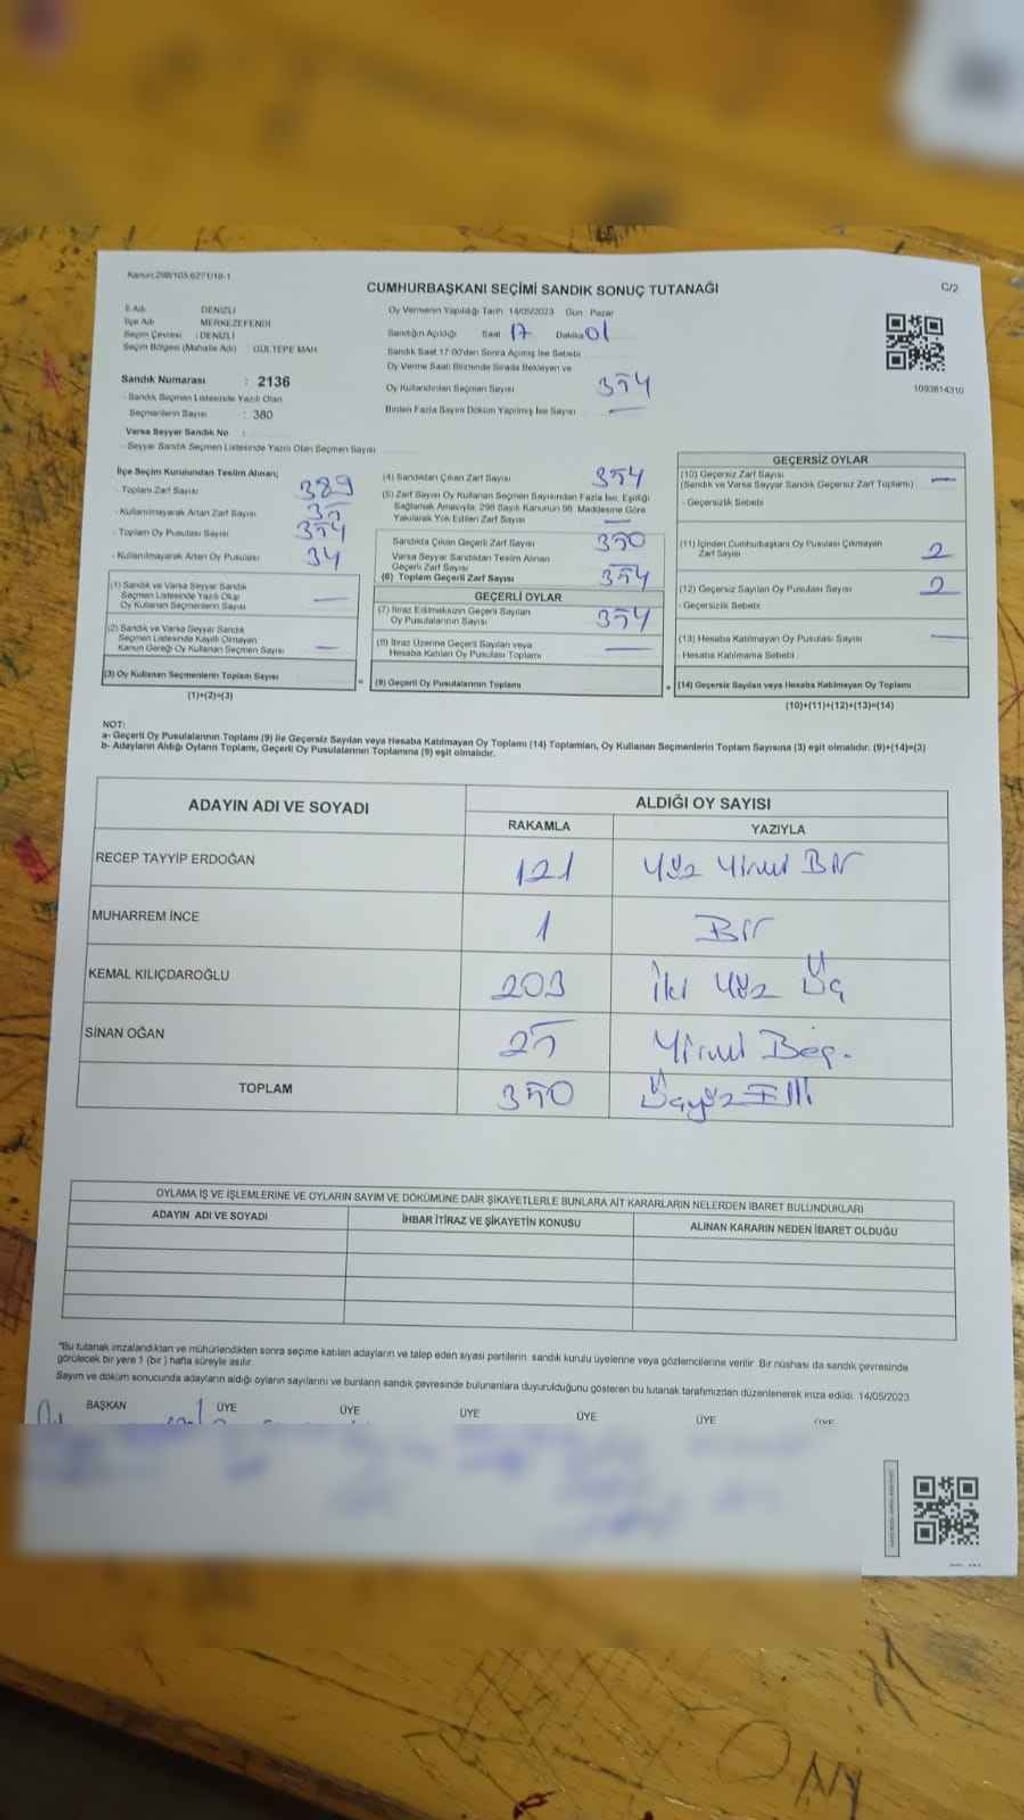 CUMHURBAŞKANI SEÇİMİ SANDIK SONUÇ TUTANAĞI
C/2
İli Adı DENİZLİ
İlçe Adı MERKEZEFENDİ
Seçim Çevresi : DENİZLİ
Seçim Bölgesi (Mahalle Adı) : GÜLTEPE MAH.
Sandık Numarası : 2136
Sandık Seçmen Listesinde Yazılı Olan
Seçmenlerin Sayısı : 380
Varsa Seyyar Sandık No :
Seyyar Sandık Seçmen Listesinde Yazılı Olan Seçmen Sayısı
Oy Vermenin Yapıldığı Tarih 14/05/2023 Gün : Pazar
Sandığın Açıldığı Saat 17 Dakika 01
Sandık Saat 17:00'dan Sonra Açılmış İse Sebebi
Oy Verme Saati Bitiminde Sırada Bekleyen ve
Oy Kullandırılan Seçmen Sayısı 354
Birden Fazla Sayım Döküm Yapılmış İse Sayısı —
1093814310
İlçe Seçim Kurulundan Teslim Alınan;
Toplam Zarf Sayısı 389
Kullanılmayarak Artan Zarf Sayısı 35
Toplam Oy Pusulası Sayısı 354
Kullanılmayarak Artan Oy Pusulası 34
(1) Sandık ve Varsa Seyyar Sandık
Seçmen Listesinde Yazılı Olup
Oy Kullanan Seçmenlerin Sayısı —
(2) Sandık ve Varsa Seyyar Sandık
Seçmen Listesinde Kayıtlı Olmayan
Kanun Gereği Oy Kullanan Seçmen Sayısı —
(3) Oy Kullanan Seçmenlerin Toplam Sayısı
(1)+(2)=(3)
(4) Sandıktan Çıkan Zarf Sayısı 354
(5) Zarf Sayısı Oy Kullanan Seçmen Sayısından Fazla İse, Eşitliği
Sağlamak Amacıyla, 298 Sayılı Kanunun 98. Maddesine Göre
Yakılarak Yok Edilen Zarf Sayısı —
Sandıkta Çıkan Geçerli Zarf Sayısı 350
Varsa Seyyar Sandıktan Teslim Alınan
Geçerli Zarf Sayısı
(6) Toplam Geçerli Zarf Sayısı 354
GEÇERLİ OYLAR
(7) İtiraz Edilmeksizin Geçerli Sayılan
Oy Pusulalarının Sayısı 354
(8) İtiraz Üzerine Geçerli Sayılan veya
Hesaba Katılan Oy Pusulası Toplamı —
(9) Geçerli Oy Pusulalarının Toplamı
GEÇERSİZ OYLAR
(10) Geçersiz Zarf Sayısı —
(Sandık ve Varsa Seyyar Sandık Geçersiz Zarf Toplamı)
Geçersizlik Sebebi
(11) İçinden Cumhurbaşkanı Oy Pusulası Çıkmayan
Zarf Sayısı 2
(12) Geçersiz Sayılan Oy Pusulası Sayısı 2
Geçersizlik Sebebi:
(13) Hesaba Katılmayan Oy Pusulası Sayısı —
Hesaba Katılmama Sebebi
(14) Geçersiz Sayılan veya Hesaba Katılmayan Oy Toplamı
(10)+(11)+(12)+(13)=(14)
NOT:
a- Geçerli Oy Pusulalarının Toplamı (9) ile Geçersiz Sayılan veya Hesaba Katılmayan Oy Toplamı (14) Toplamları, Oy Kullanan Seçmenlerin Toplam Sayısına (3) eşit olmalıdır. (9)+(14)=(3)
b- Adayların Aldığı Oyların Toplamı, Geçerli Oy Pusulalarının Toplamına (9) eşit olmalıdır.
ADAYIN ADI VE SOYADI
ALDIĞI OY SAYISI
RAKAMLA YAZIYLA
RECEP TAYYİP ERDOĞAN 121 Yüz Yirmi Bir
MUHARREM İNCE 1 Bir
KEMAL KILIÇDAROĞLU 203 İki Yüz Üç
SİNAN OĞAN 25 Yirmi Beş.
TOPLAM 350 Üçyüz Elli
OYLAMA İŞ VE İŞLEMLERİNE VE OYLARIN SAYIM VE DÖKÜMÜNE DAİR ŞİKAYETLERLE BUNLARA AİT KARARLARIN NELERDEN İBARET BULUNDUKLARI
ADAYIN ADI VE SOYADI İHBAR İTİRAZ VE ŞİKAYETİN KONUSU ALINAN KARARIN NEDEN İBARET OLDUĞU
"Bu tutanak imzalandıktan ve mühürlendikten sonra seçime katılan adayların ve talep eden siyasi partilerin sandık kurulu üyelerine veya gözlemcilerine verilir. Bir nüshası da sandık çevresinde
görülecek bir yere 1 (bir) hafta süreyle asılır.
Sayım ve döküm sonucunda adayların aldığı oyların sayılarını ve bunların sandık çevresinde bulunanlara duyurulduğunu gösteren bu tutanak tarafımızdan düzenlenerek imza edildi. 14/05/2023
BAŞKAN ÜYE ÜYE ÜYE ÜYE ÜYE ÜYE